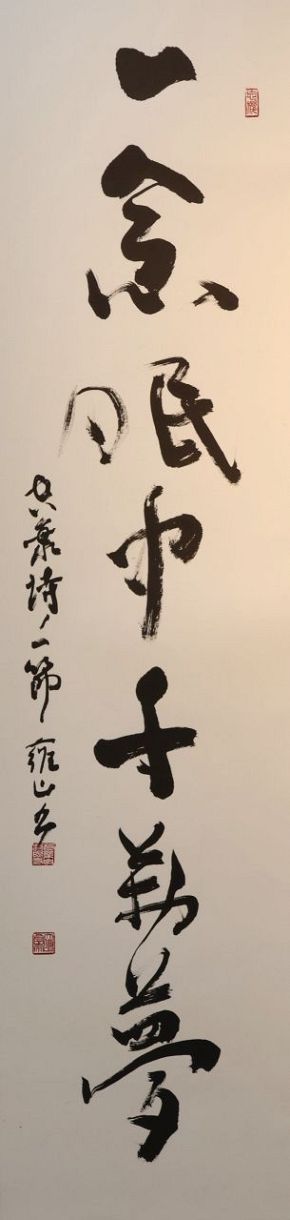 一念眠中千萬夢
詩ノ一節 雍山書